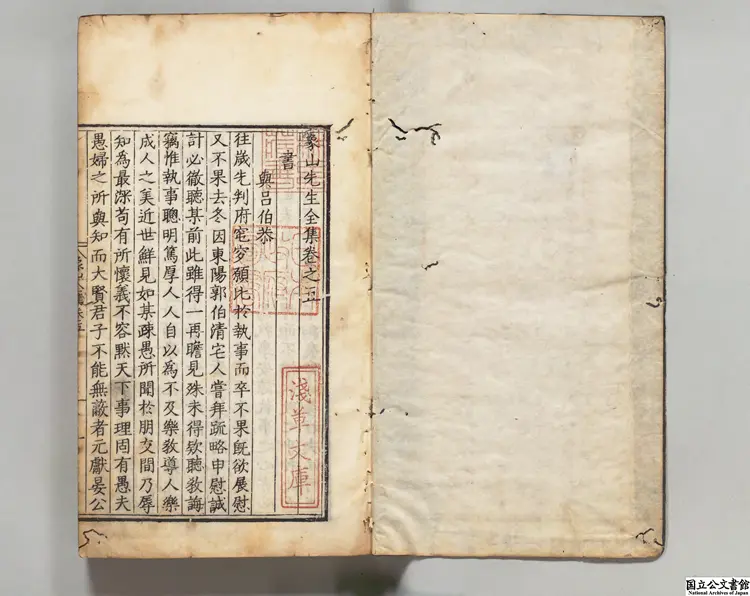 象山先生全集卷之五
書
與呂伯恭
往歲先判府宅穸願比於執事而卒不果旣欲展慰
又不果去冬因東陽郭伯清宅人嘗拜䟽略申慰誠
計必徹聽某前此雖得一再瞻見殊未得欵聽敎誨
竊惟執事聰明篤厚人人自以為不及樂敎導人樂
成人之美近世鮮見如某疎愚所聞於朋交間乃辱
知為最深苟有所懷義不容黙天下事理固有愚夫
愚婦之所與知而大賢君子不能無蔽者元獻晏公
淺草文庫
国立公文書館
National Archives of Japan